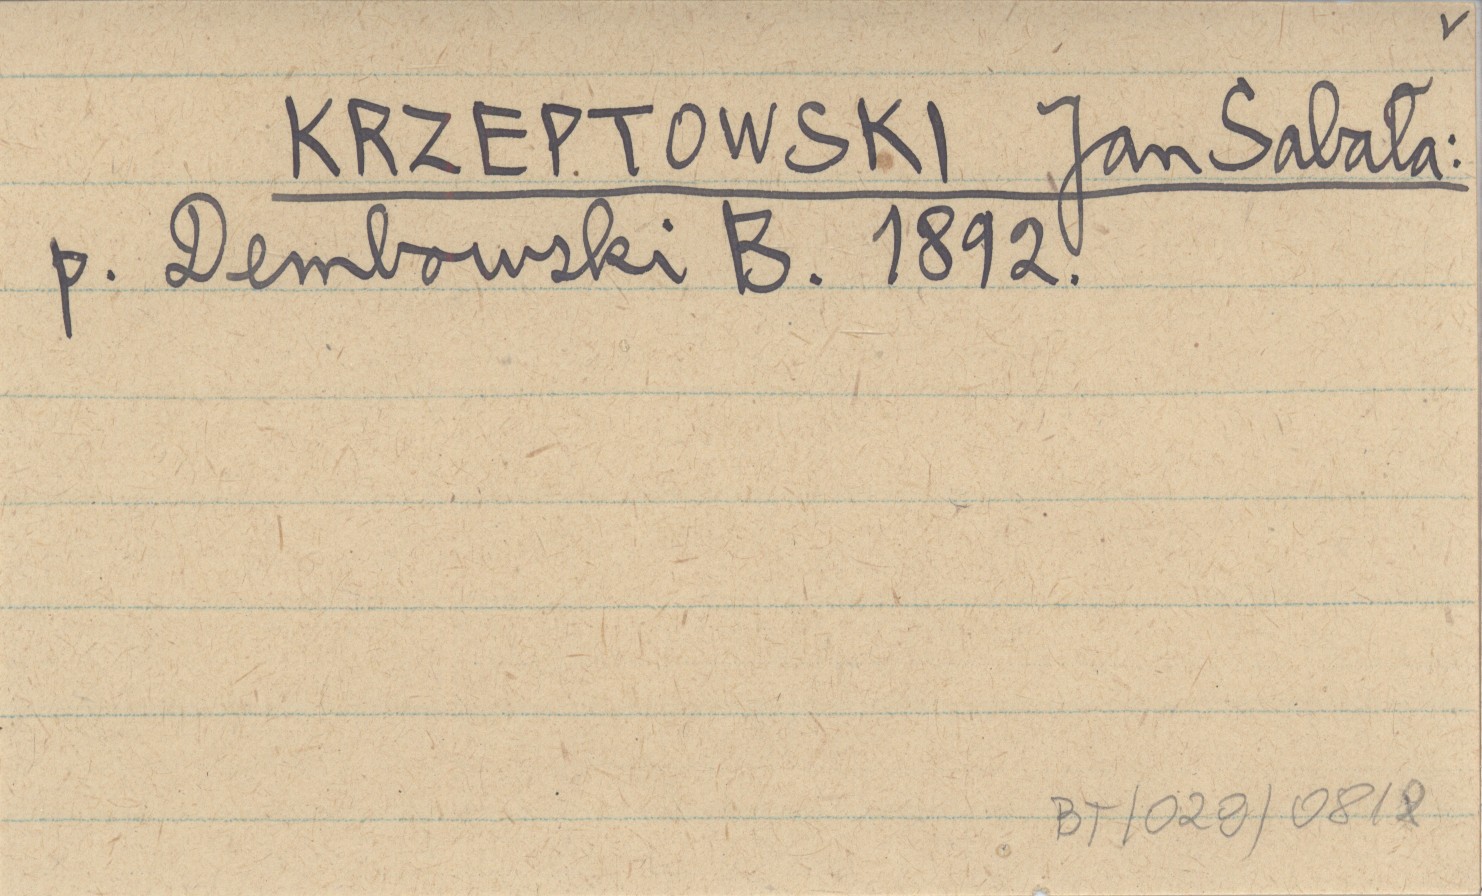 ✓
KRZEPTOWSKI Jan Sabała:
p. Dembowski B. 1892.
BT/028/0812